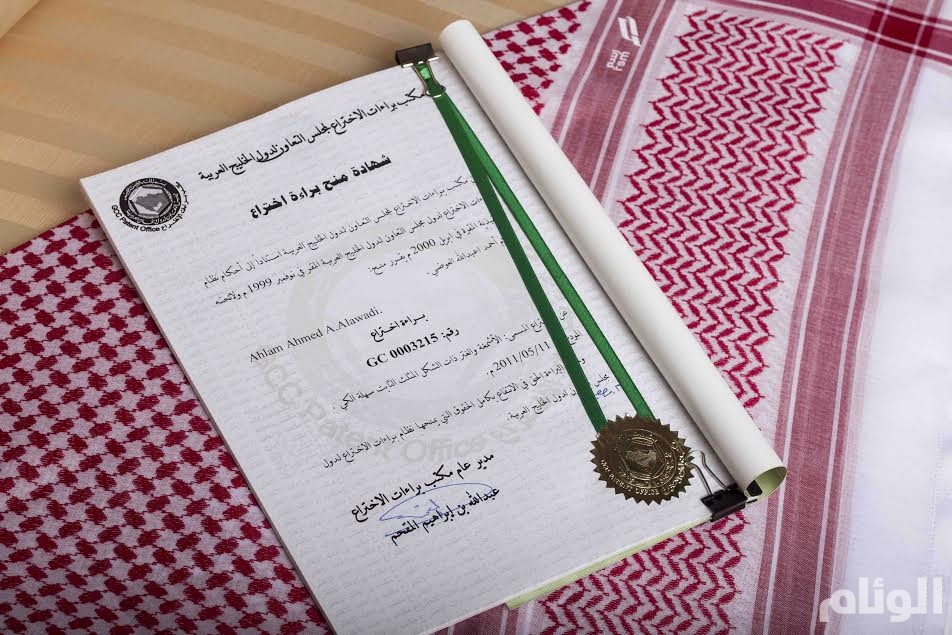 مكتب براءات الاختراع لمجلس التعاون لدول الخليج العربية
شهادة منح براءة اختراع
GCC Patent Office
مكتب براءات الاختراع لمجلس التعاون لدول الخليج العربية استناداً إلى أحكام نظام
الاختراع لدول مجلس التعاون لدول الخليج العربية المقر في نوفمبر 1999م ولائحته
المقرة في إبريل 2000م يقرر منح:
أحمد عبدالله العوضي.
Ahlam Ahmed A.Alawadi.
براءة اختراع
رقم: GC 0003215
عن الاختراع المسمى: الأشمغة والغتر ذات الشكل المثلث الثابت سهلة الكي.
2011/05/11م.
البراءة الحق في الانتفاع بكامل الحقوق التي يمنحها نظام براءات الاختراع لدول
مجلس لدول الخليج العربية.
مدير عام مكتب براءات الاختراع
عبدالله بن إبراهيم المقحم
GCC Patent Office
رسم
rsm
الوئام